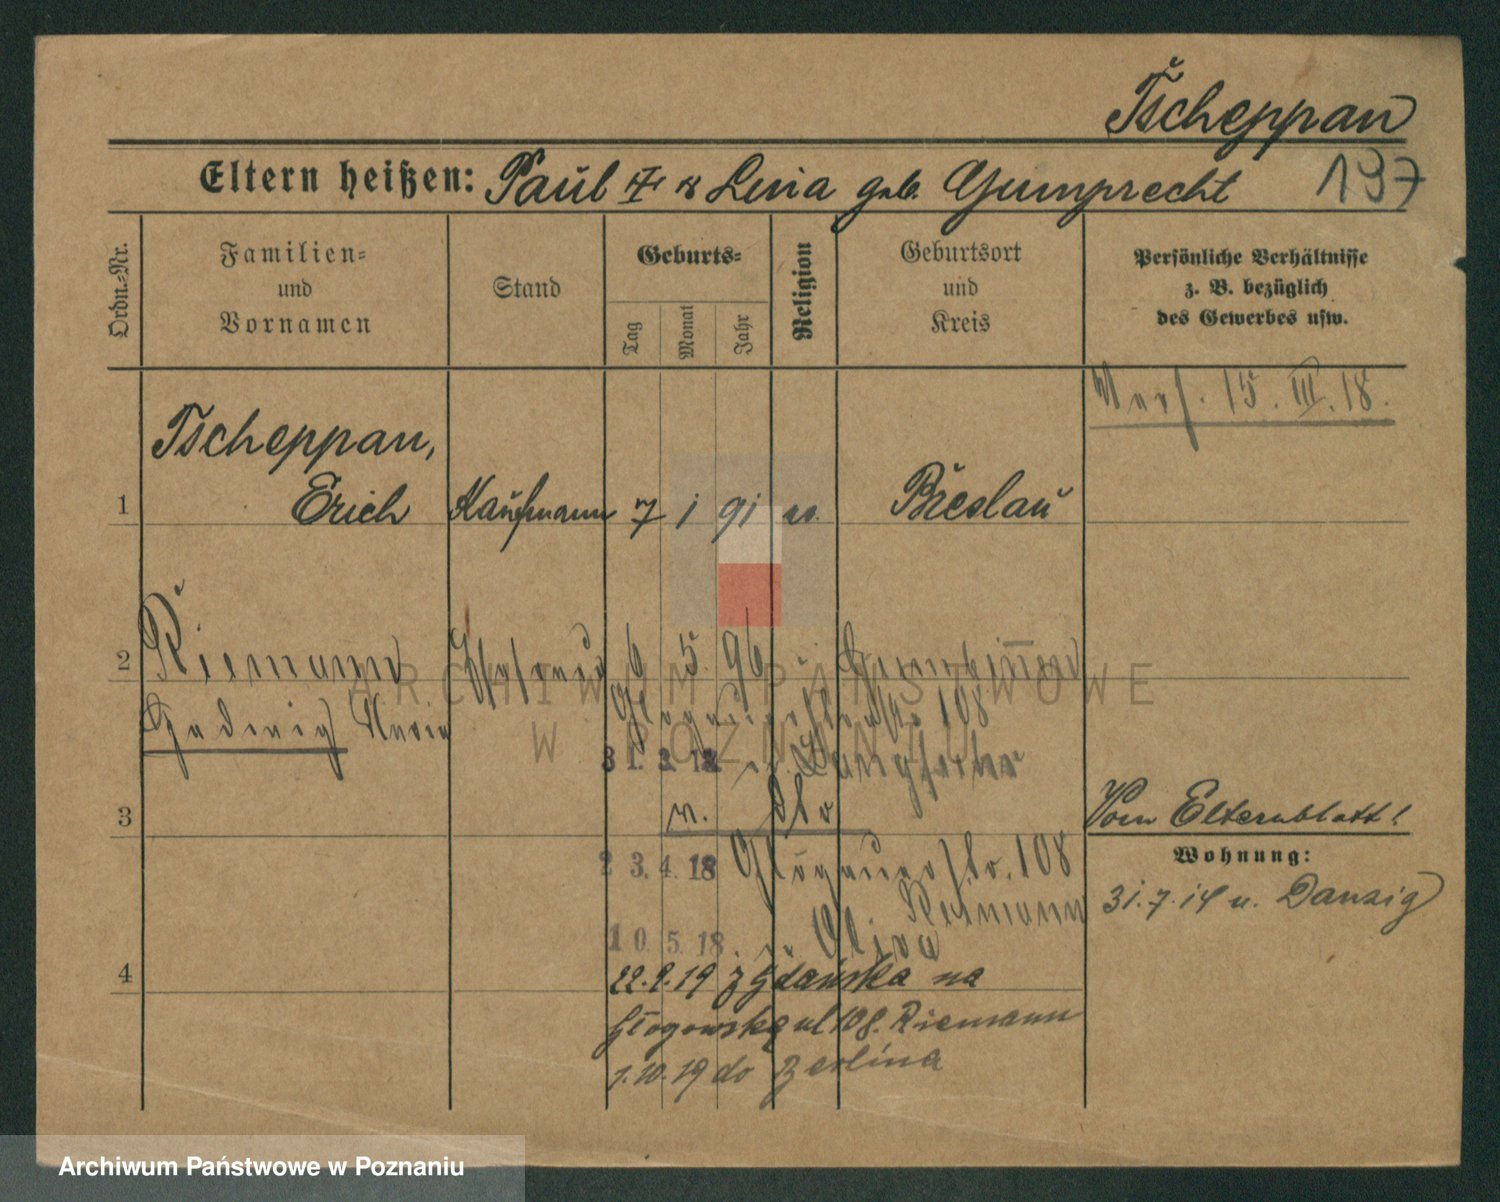 Tscheppan
Eltern heißen: Paul II & Lina geb. Gumprecht 197
Ordn.-Nr.
Familien-
und
Vornamen
Stand
Geburts-
Tag
Monat
Jahr
Religion
Geburtsort
und
Kreis
Persönliche Verhältnisse
z. B. bezüglich
des Gewerbes usw.
15. III. 18.
Tscheppan,
1 Erich Kaufmann 7 1 91 Breslau
2 Riemann 6 5 96 Gumbinnen
Hedwig Maria 108
31.3.18 Langfuhr
3
Vom Elternblatt!
Wohnung:
23.4.18 Glogauerstr. 108
Reimann
31.7.14 n. Danzig
10.5.18. n. Oliva
4 22.9.19 z Gdańska na
Głogowską ul 108. Riemann
1.10.19 do Berlina
ARCHIWUM PAŃSTWOWE
W POZNANIU
Archiwum Państwowe w Poznaniu